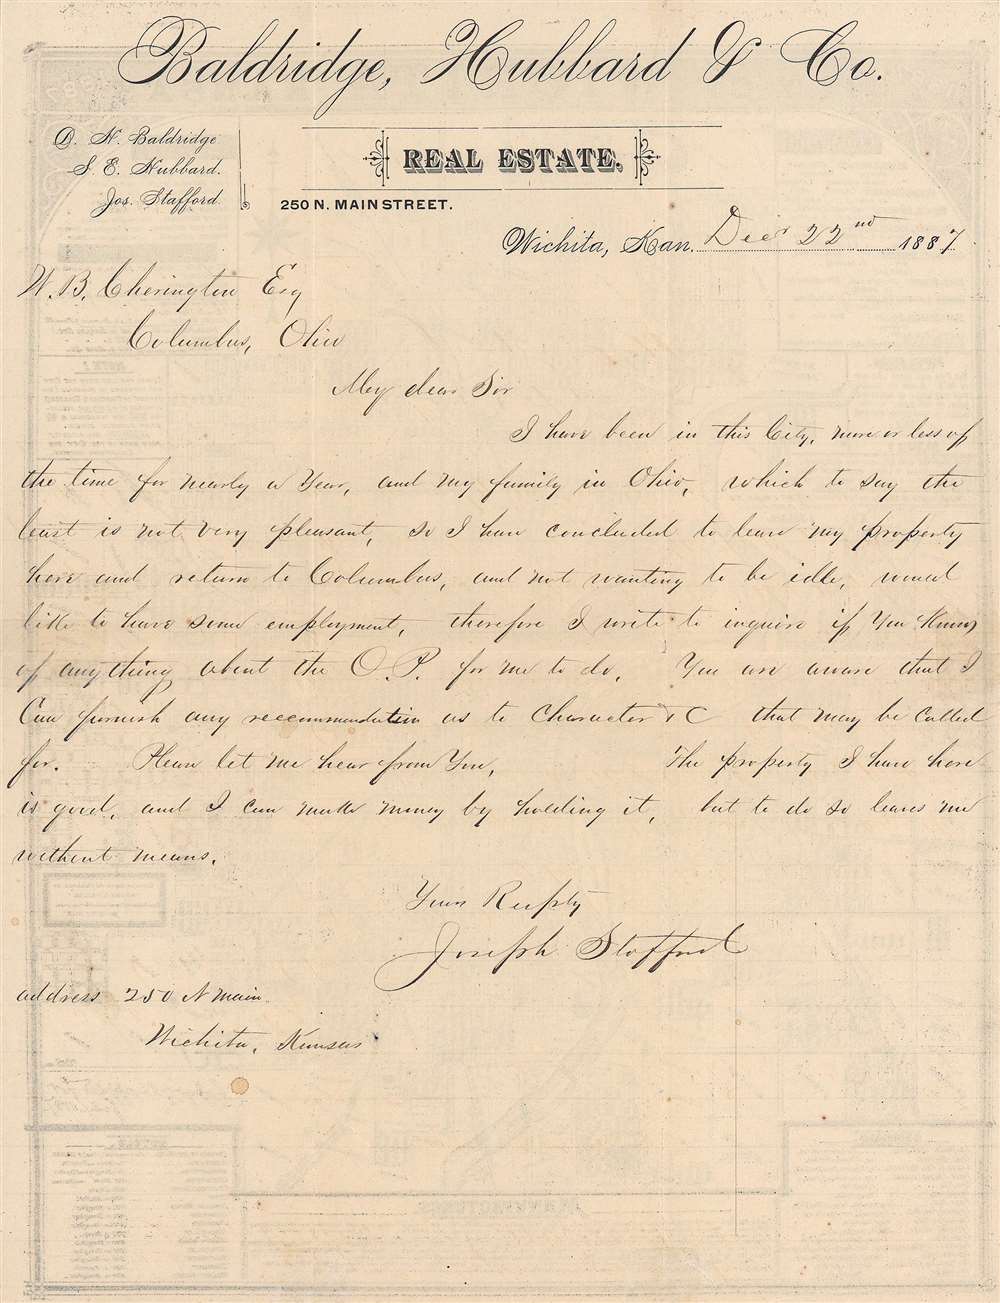 Baldridge, Hubbard & Co.
D. N. Baldridge
S. E. Hubbard.
Jos. Stafford.
REAL ESTATE.
250 N. MAIN STREET.
Wichita, Kan. Decr 22nd 1887
W. B. Cherington Esq
Columbus, Ohio
My dear Sir
I have been in this City, more or less of
the time for nearly a Year, and my family in Ohio, which to say the
least is not very pleasant, so I have concluded to leave my property
here and return to Columbus, and not wanting to be idle, would
like to have some employment, therefore I write to inquire if You Know
of anything about the O. P. for me to do. You are aware that I
Can furnish any reccommendation as to Character & C that may be Called
for. Please let me hear from You, The property I have here
is good, and I can make money by holding it, but to do so leaves me
without means.
Yours Respty
Joseph Stafford
address 250 N Main
Wichita, Kansas